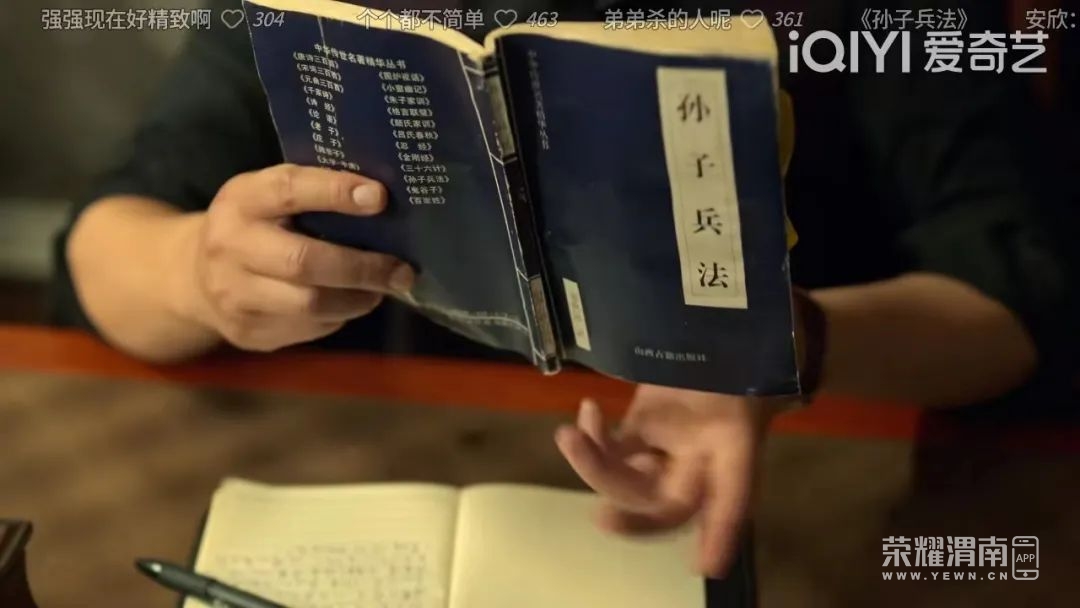 强强现在好精致啊 304
个个都不简单 463
弟弟杀的人呢 361
《孙子兵法》
安欣:
iQIYI 爱奇艺
中华传世名著精华丛书
《唐诗三百首》
《宋词三百首》
《元曲三百首》
《千家诗》
《诗经》
《论语》
《老子》
《庄子》
《围炉夜话》
《小窗幽记》
《朱子家训》
《格言联璧》
《颜氏家训》
《吕氏春秋》
《忍经》
《金刚经》
《三十六计》
《孙子兵法》
《鬼谷子》
《百家姓》
孙子兵法
山西古籍出版社
荣耀渭南 APP
WWW.YEWN.CN